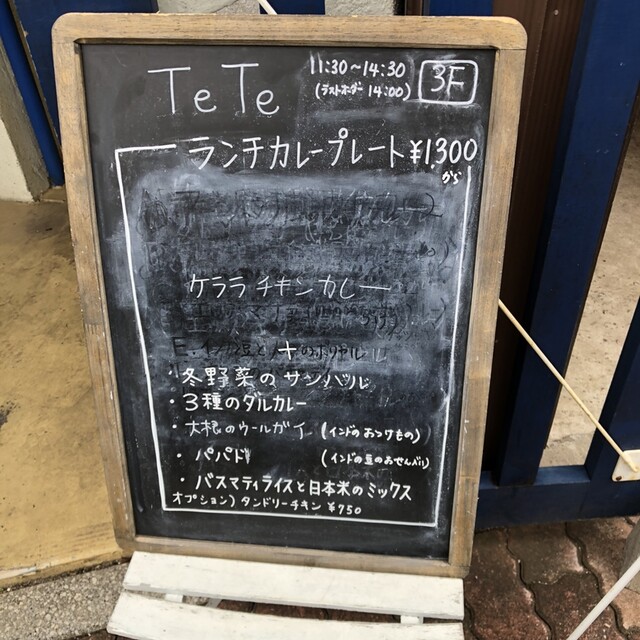 TeTe
11:30~14:30
(ラストオーダー 14:00)
3F
ランチカレープレート ¥1.300
から
ケララチキンカレー
+
・冬野菜のサンバル
・3種のダルカレー
・大根のウールガイ (インドのおつけもの)
・パパド (インドの豆のおせんべい)
・バスマティライスと日本米のミックス
オプション) タンドリーチキン ¥750